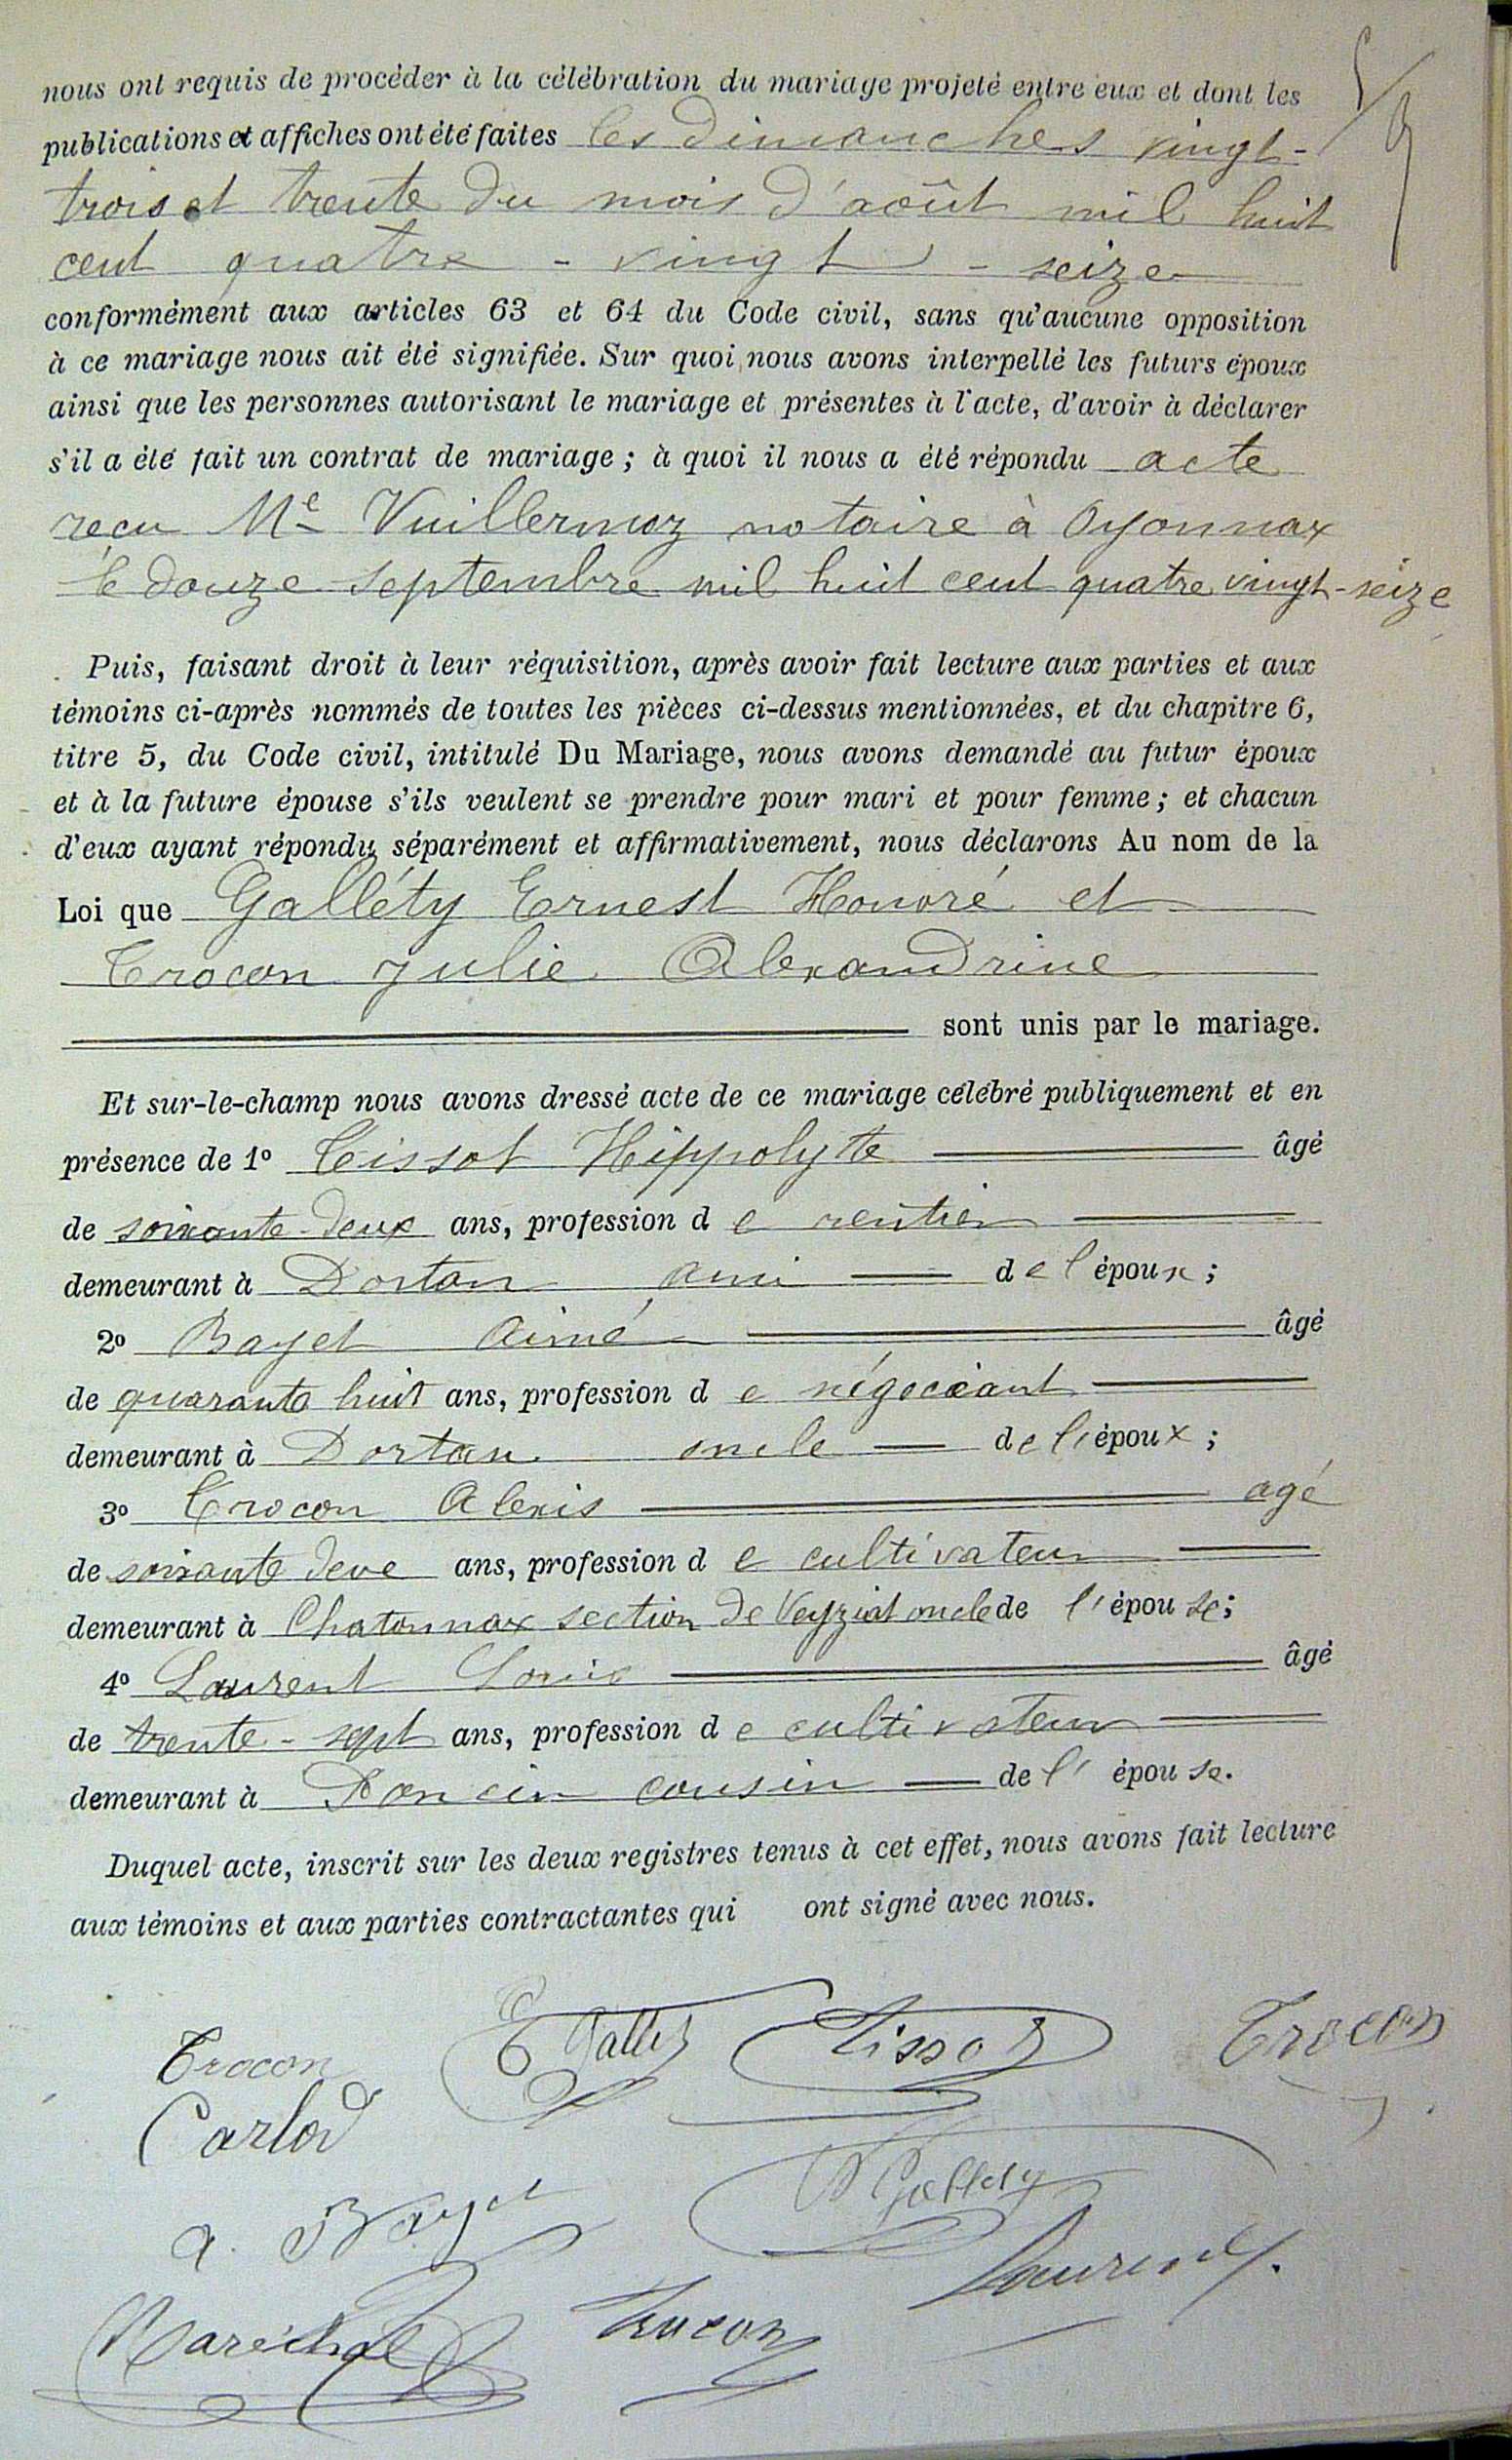 nous ont requis de procéder à la célébration du mariage projeté entre eux et dont les
publications et affiches ont été faites les dimanches vingt-
trois et trente du mois d'août mil huit
cent quatre - vingt - seize
conformément aux articles 63 et 64 du Code civil, sans qu'aucune opposition
à ce mariage nous ait été signifiée. Sur quoi nous avons interpellé les futurs époux
ainsi que les personnes autorisant le mariage et présentes à l'acte, d'avoir à déclarer
s'il a été fait un contrat de mariage ; à quoi il nous a été répondu acte
reçu Me Vuillermoz notaire à Oyonnax
le douze septembre mil huit cent quatre vingt-seize
Puis, faisant droit à leur réquisition, après avoir fait lecture aux parties et aux
témoins ci-après nommés de toutes les pièces ci-dessus mentionnées, et du chapitre 6,
titre 5, du Code civil, intitulé Du Mariage, nous avons demandé au futur époux
et à la future épouse s'ils veulent se prendre pour mari et pour femme ; et chacun
d'eux ayant répondu séparément et affirmativement, nous déclarons Au nom de la
Loi que Galléty Ernest Honoré et
Crocon Julie Alexandrine
sont unis par le mariage.
Et sur-le-champ nous avons dressé acte de ce mariage célébré publiquement et en
présence de 1º Tissot Hippolyte âgé
de soixante-deux ans, profession de rentier
demeurant à Dortan ami de l'époux ;
2º Bayet Aimé âgé
de quarante huit ans, profession de négociant
demeurant à Dortan oncle de l'époux ;
3º Crocon Alexis agé
de soixante deux ans, profession de cultivateur
demeurant à Chatonnax section de Veyziat oncle de l'épouse ;
4º Laurent Louis âgé
de trente-sept ans, profession de cultivateur
demeurant à cousin de l'épouse.
Duquel acte, inscrit sur les deux registres tenus à cet effet, nous avons fait lecture
aux témoins et aux parties contractantes qui ont signé avec nous.
Crocon E Gallety Tissot Crocon
Carlod
a. Bayet Gallety
Laurent
Maréchal Crocon